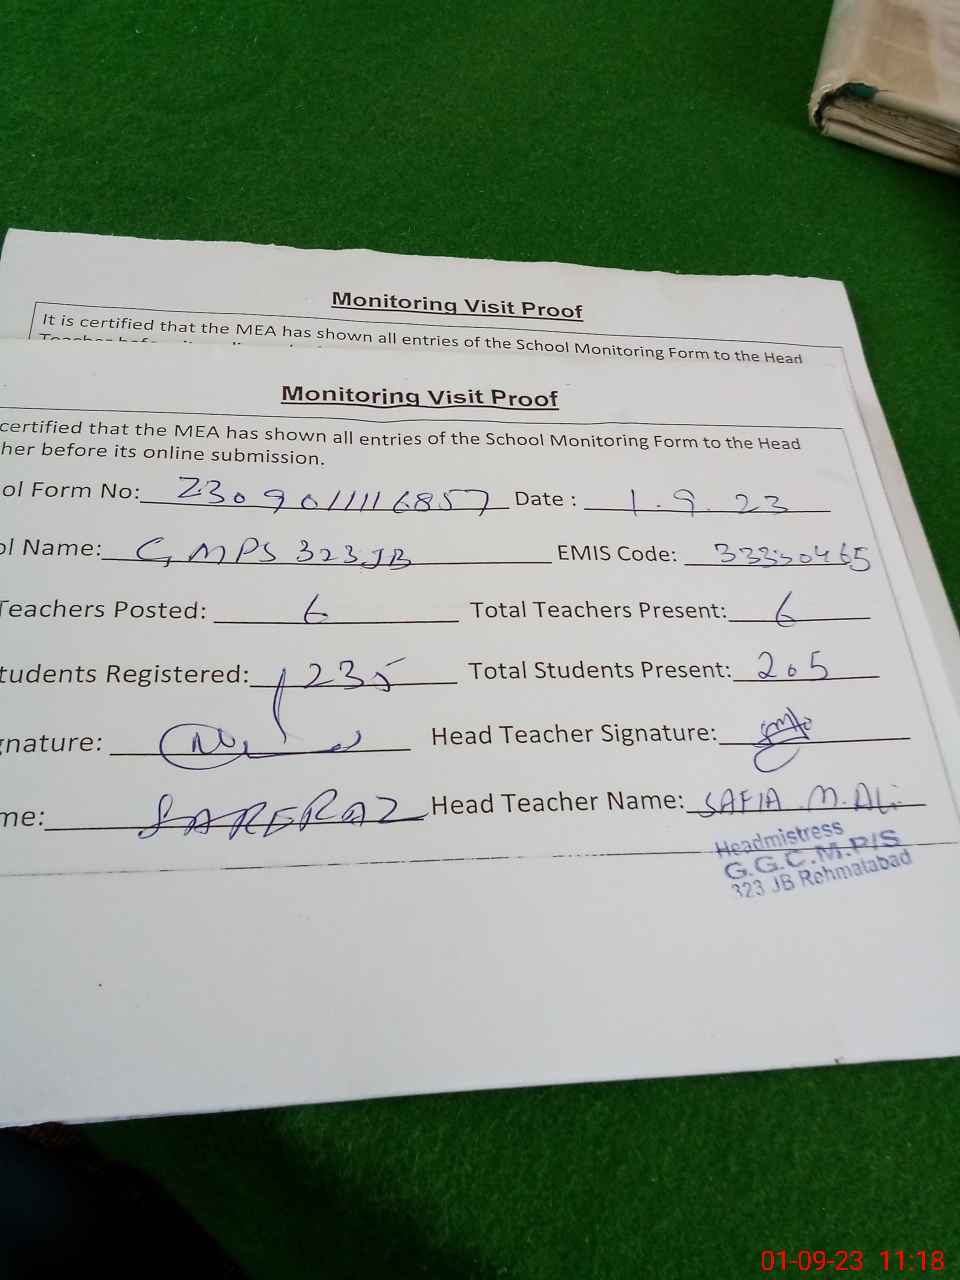 Monitoring Visit Proof
It is certified that the MEA has shown all entries of the School Monitoring Form to the Head
Monitoring Visit Proof
certified that the MEA has shown all entries of the School Monitoring Form to the Head
her before its online submission.
ol Form No: 2309011116857 Date : 1.9.23
ol Name: GMPS 323JB EMIS Code: 33330465
Teachers Posted: 6 Total Teachers Present: 6
tudents Registered: 235 Total Students Present: 205
gnature: Head Teacher Signature:
me: SARFRAZ Head Teacher Name: SAFIA M. ALi
Headmistress
G.G.C.M.P/S
323 JB Rehmatabad
01-09-23 11:18